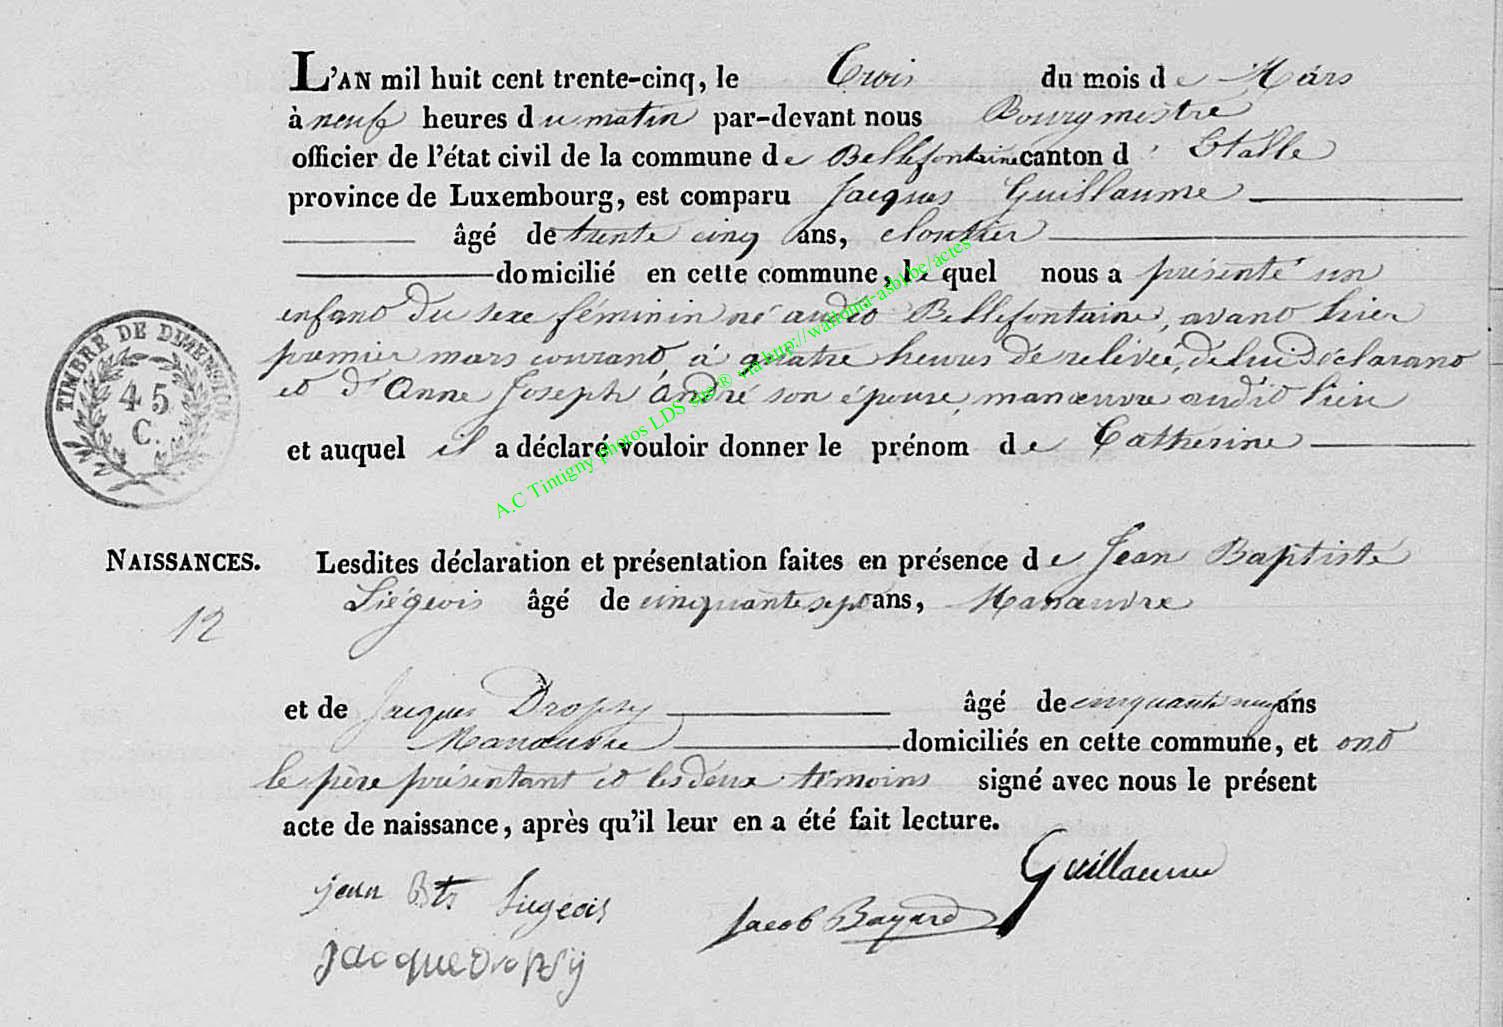 L'AN mil huit cent trente-cinq, le Trois du mois de Mars
à neuf heures du matin par-devant nous Bourgmestre
officier de l'état civil de la commune de Bellefontaine canton d' Etalle
province de Luxembourg, est comparu Jacques Guillaume
âgé de trente cinq ans, cloutier
domicilié en cette commune, lequel nous a présenté un
enfant du sexe féminin né audit Bellefontaine, avant hier
premier mars courant, à quatre heures de relevée, de lui déclarant
et d'Anne Joseph André son épouse, manœuvre audit lieu
et auquel il a déclaré vouloir donner le prénom de Catherine
TIMBRE DE DIMENSION
45
C.
A.C Tintigny photos LDS sur ® via http://wallonia-asbl.be/actes
NAISSANCES.
12
Lesdites déclaration et présentation faites en présence de Jean Baptiste
Liégeois âgé de cinquante sept ans, Manœuvre
et de Jacques Dropsy âgé de cinquante neuf ans
Manœuvre domiciliés en cette commune, et ont
le père présentant et les deux témoins signé avec nous le présent
acte de naissance, après qu'il leur en a été fait lecture.
Guillaume
jean Bte Liegeois
Jacob Bayard
jacque Dropsy